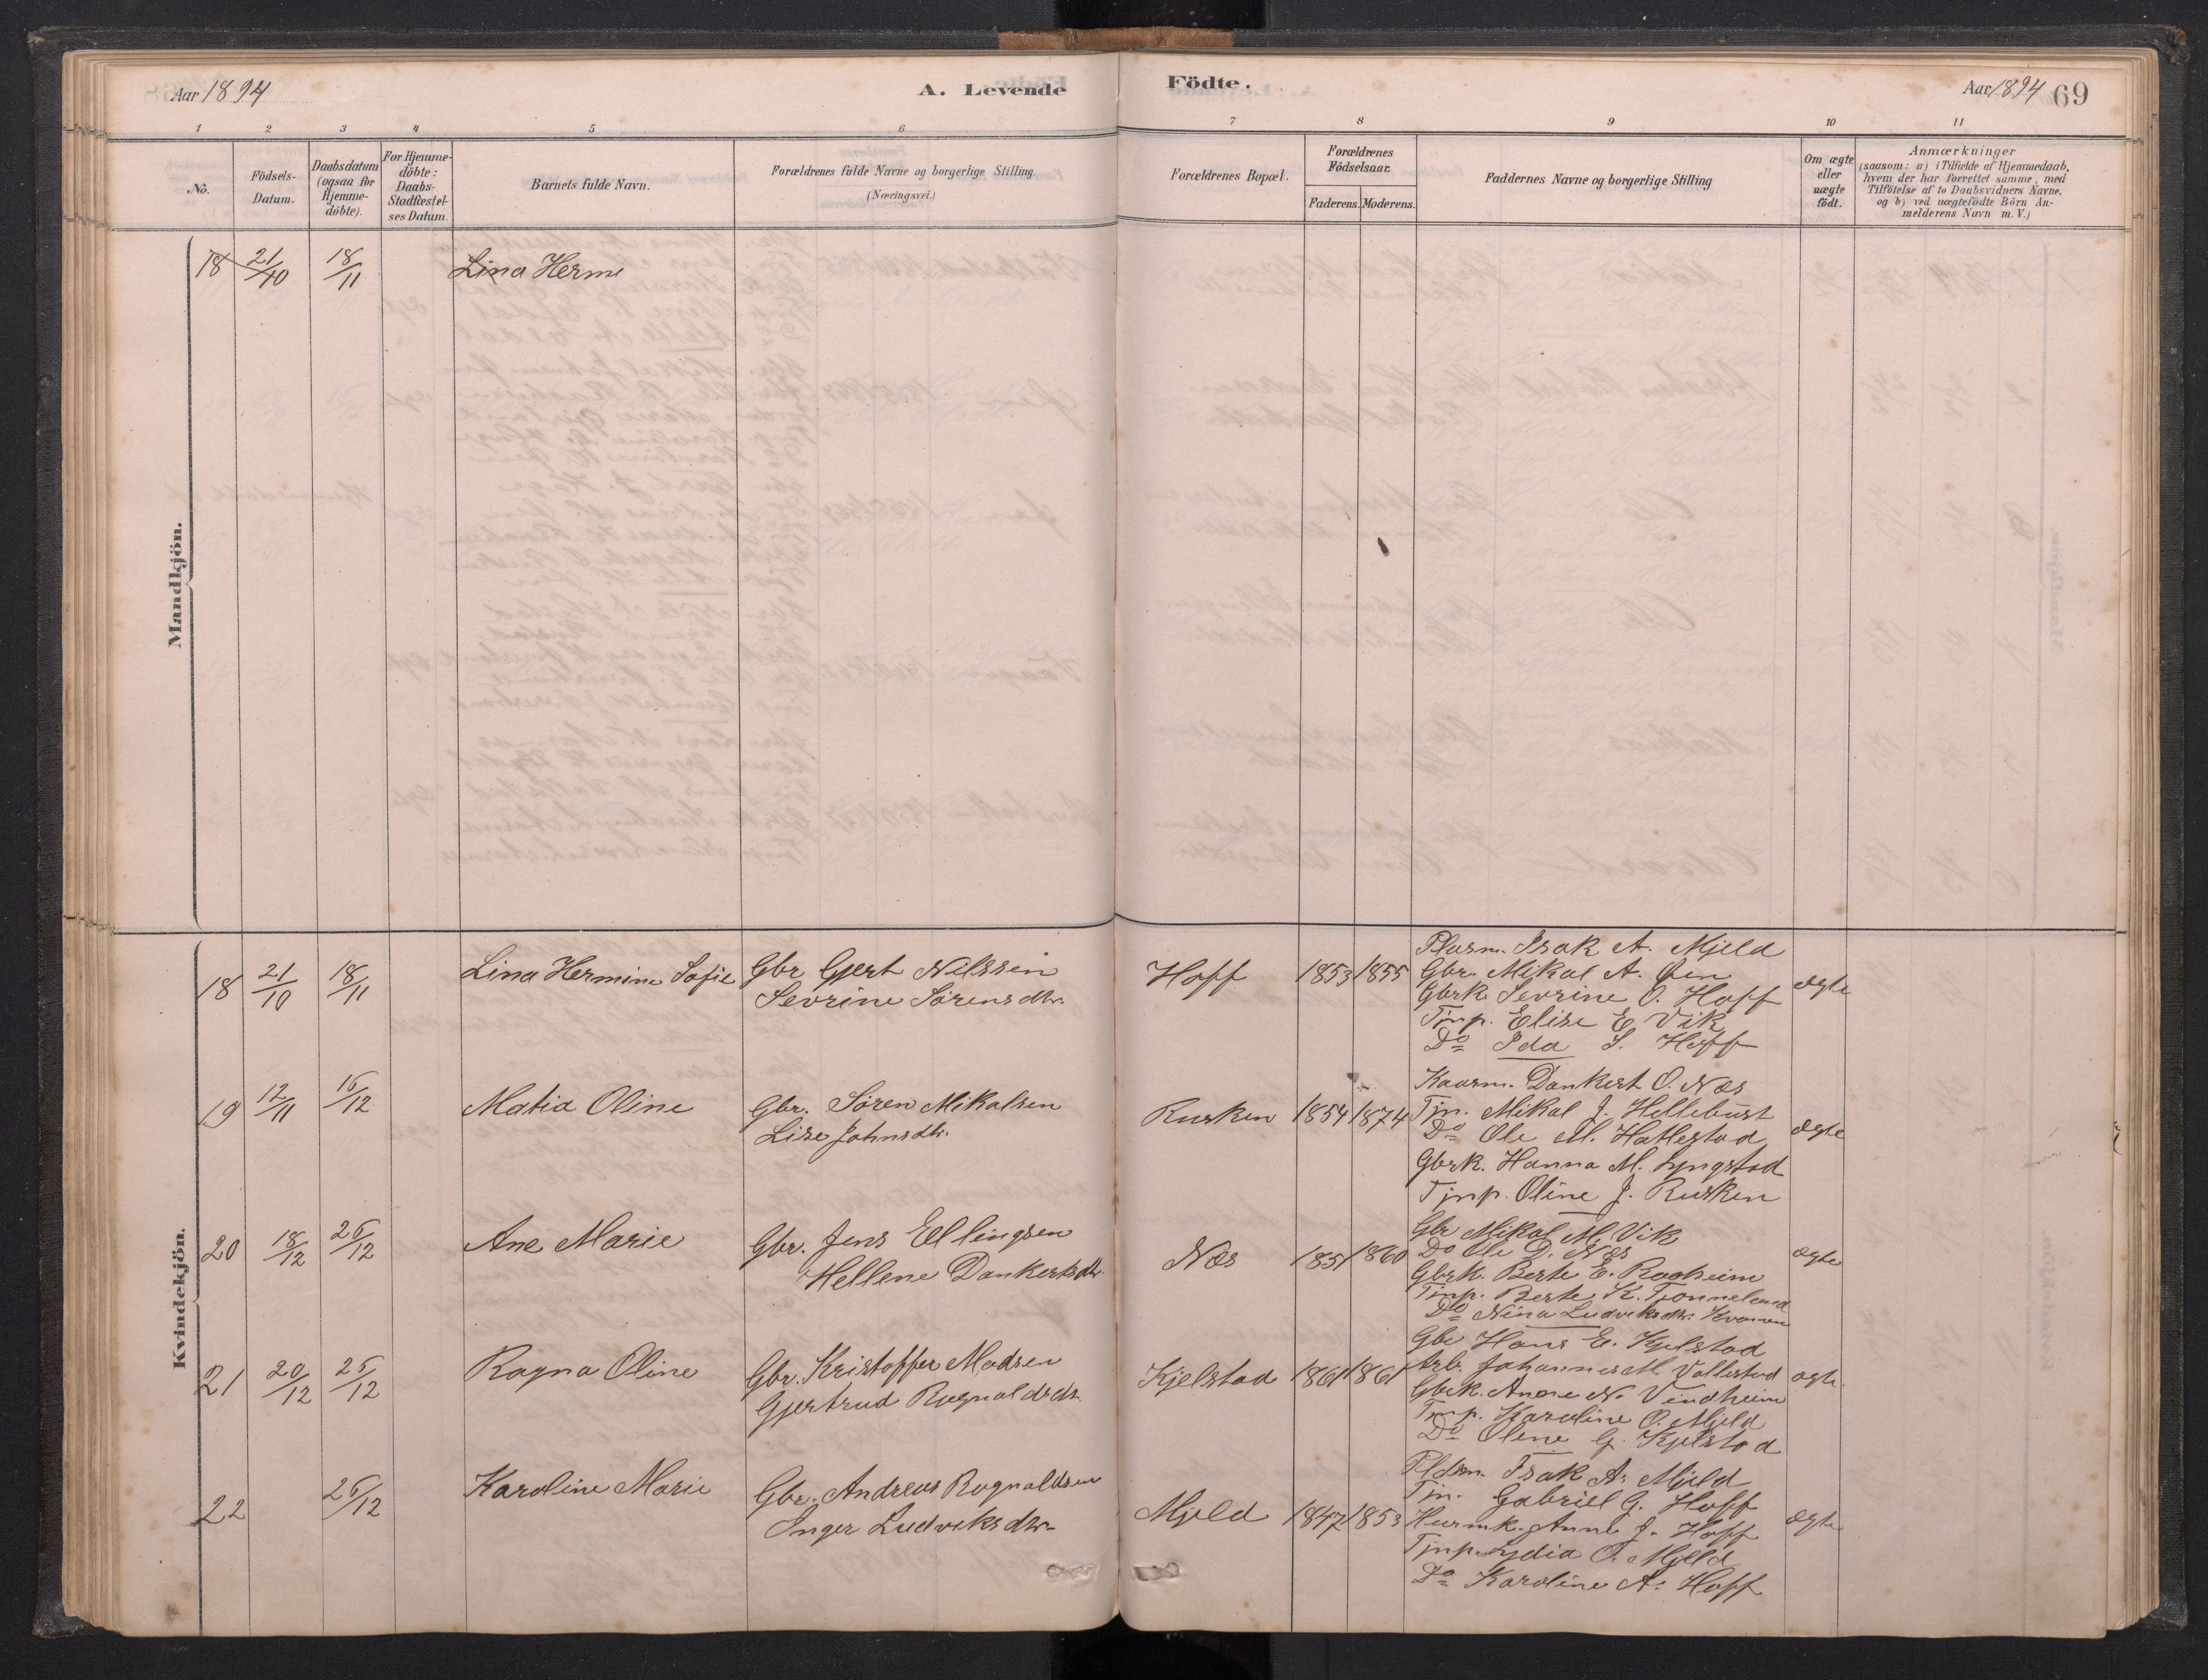 Aar 1894
A. Levende
Födte.
Aar 1894 69
1 2 3 4 5 6 7 8 9 10 11
No.
Födsels-
Datum.
Daabsdatum
(ogsaa for
Hjemme-
döbte).
For Hjemme-
döbte:
Daabs-
Stadfæstel-
ses Datum.
Barnets fulde Navn.
Forældrenes fulde Navne og borgerlige Stilling
(Næringsvei.)
Forældrenes Bopæl.
Forældrenes
Födselsaar.
Faderens. Moderens.
Faddernes Navne og borgerlige Stilling
Om ægte
eller
uægte
födt.
Anmærkninger
(saasom: a) i Tilfælde af Hjemmedaab,
hvem der har forrettet samme, med
Tilföielse af to Daabsvidners Navne,
og b) ved uægtefödte Börn An-
melderens Navn m. V.)
Mandkjön.
18 21/10 18/11 Lina Hermi
Kvindekjön.
18 21/10 18/11 Lina Hermine Sofie
Gbr Gjert Nilssen
Sevrine Sörensdtr.
Hoff 1853 1855
Plasm. Isak A. Mjeld
Gbr. Mikal A. Öen
Gbrk. Sevrine O. Hoff
Tjnp. Elise E. Vik
Do Ida S. Hoff
ægte
19 12/11 16/12 Matia Oline
Gbr. Sören Mikalsen
Lise Johnsdtr.
Rusken 1854 1874
Kaarm. Dankert O. Næs
Tjn. Mikal J. Hellebust
Do Ole M. Hatlestad
Gbrk. Hanna M. Lyngstad
Tjnp. Oline J. Rusken
ægte
20 18/12 26/12 Ane Marie
Gbr. Jens Ellingsen
Hellene Dankertsdtr.
Næs 1851 1860
Gbr Mikal M. Vik
Do Ole D. Næs
Gbrk. Berte E. Rogheim
Tjnp. Berte K. Tjönneland
Do Nina Ludviksdtr. Kvamen
ægte
21 20/12 26/12 Ragna Oline
Gbr. Kristoffer Madsen
Gjertrud Rognaldsdtr.
Kjelstad 1861 1861
Gbr Hans E. Kjelstad
Arb. Johannes M. Vallestad
Gbrk. Anne N. Vindheim
Tjnp. Karoline O. Mjeld
Do Oline G. Kjelstad
ægte.
22 26/12 Karoline Marie
Gbr. Andreas Rognaldsen
Inger Ludviksdtr.
Mjeld 1847 1853
Pldsm. Isak A. Mjeld
Tjn. Gabriel G. Hoff
Husmk. Anne J. Hoff
Tjnp. Lydia O. Mjeld
Do Karoline A. Hoff
ægte